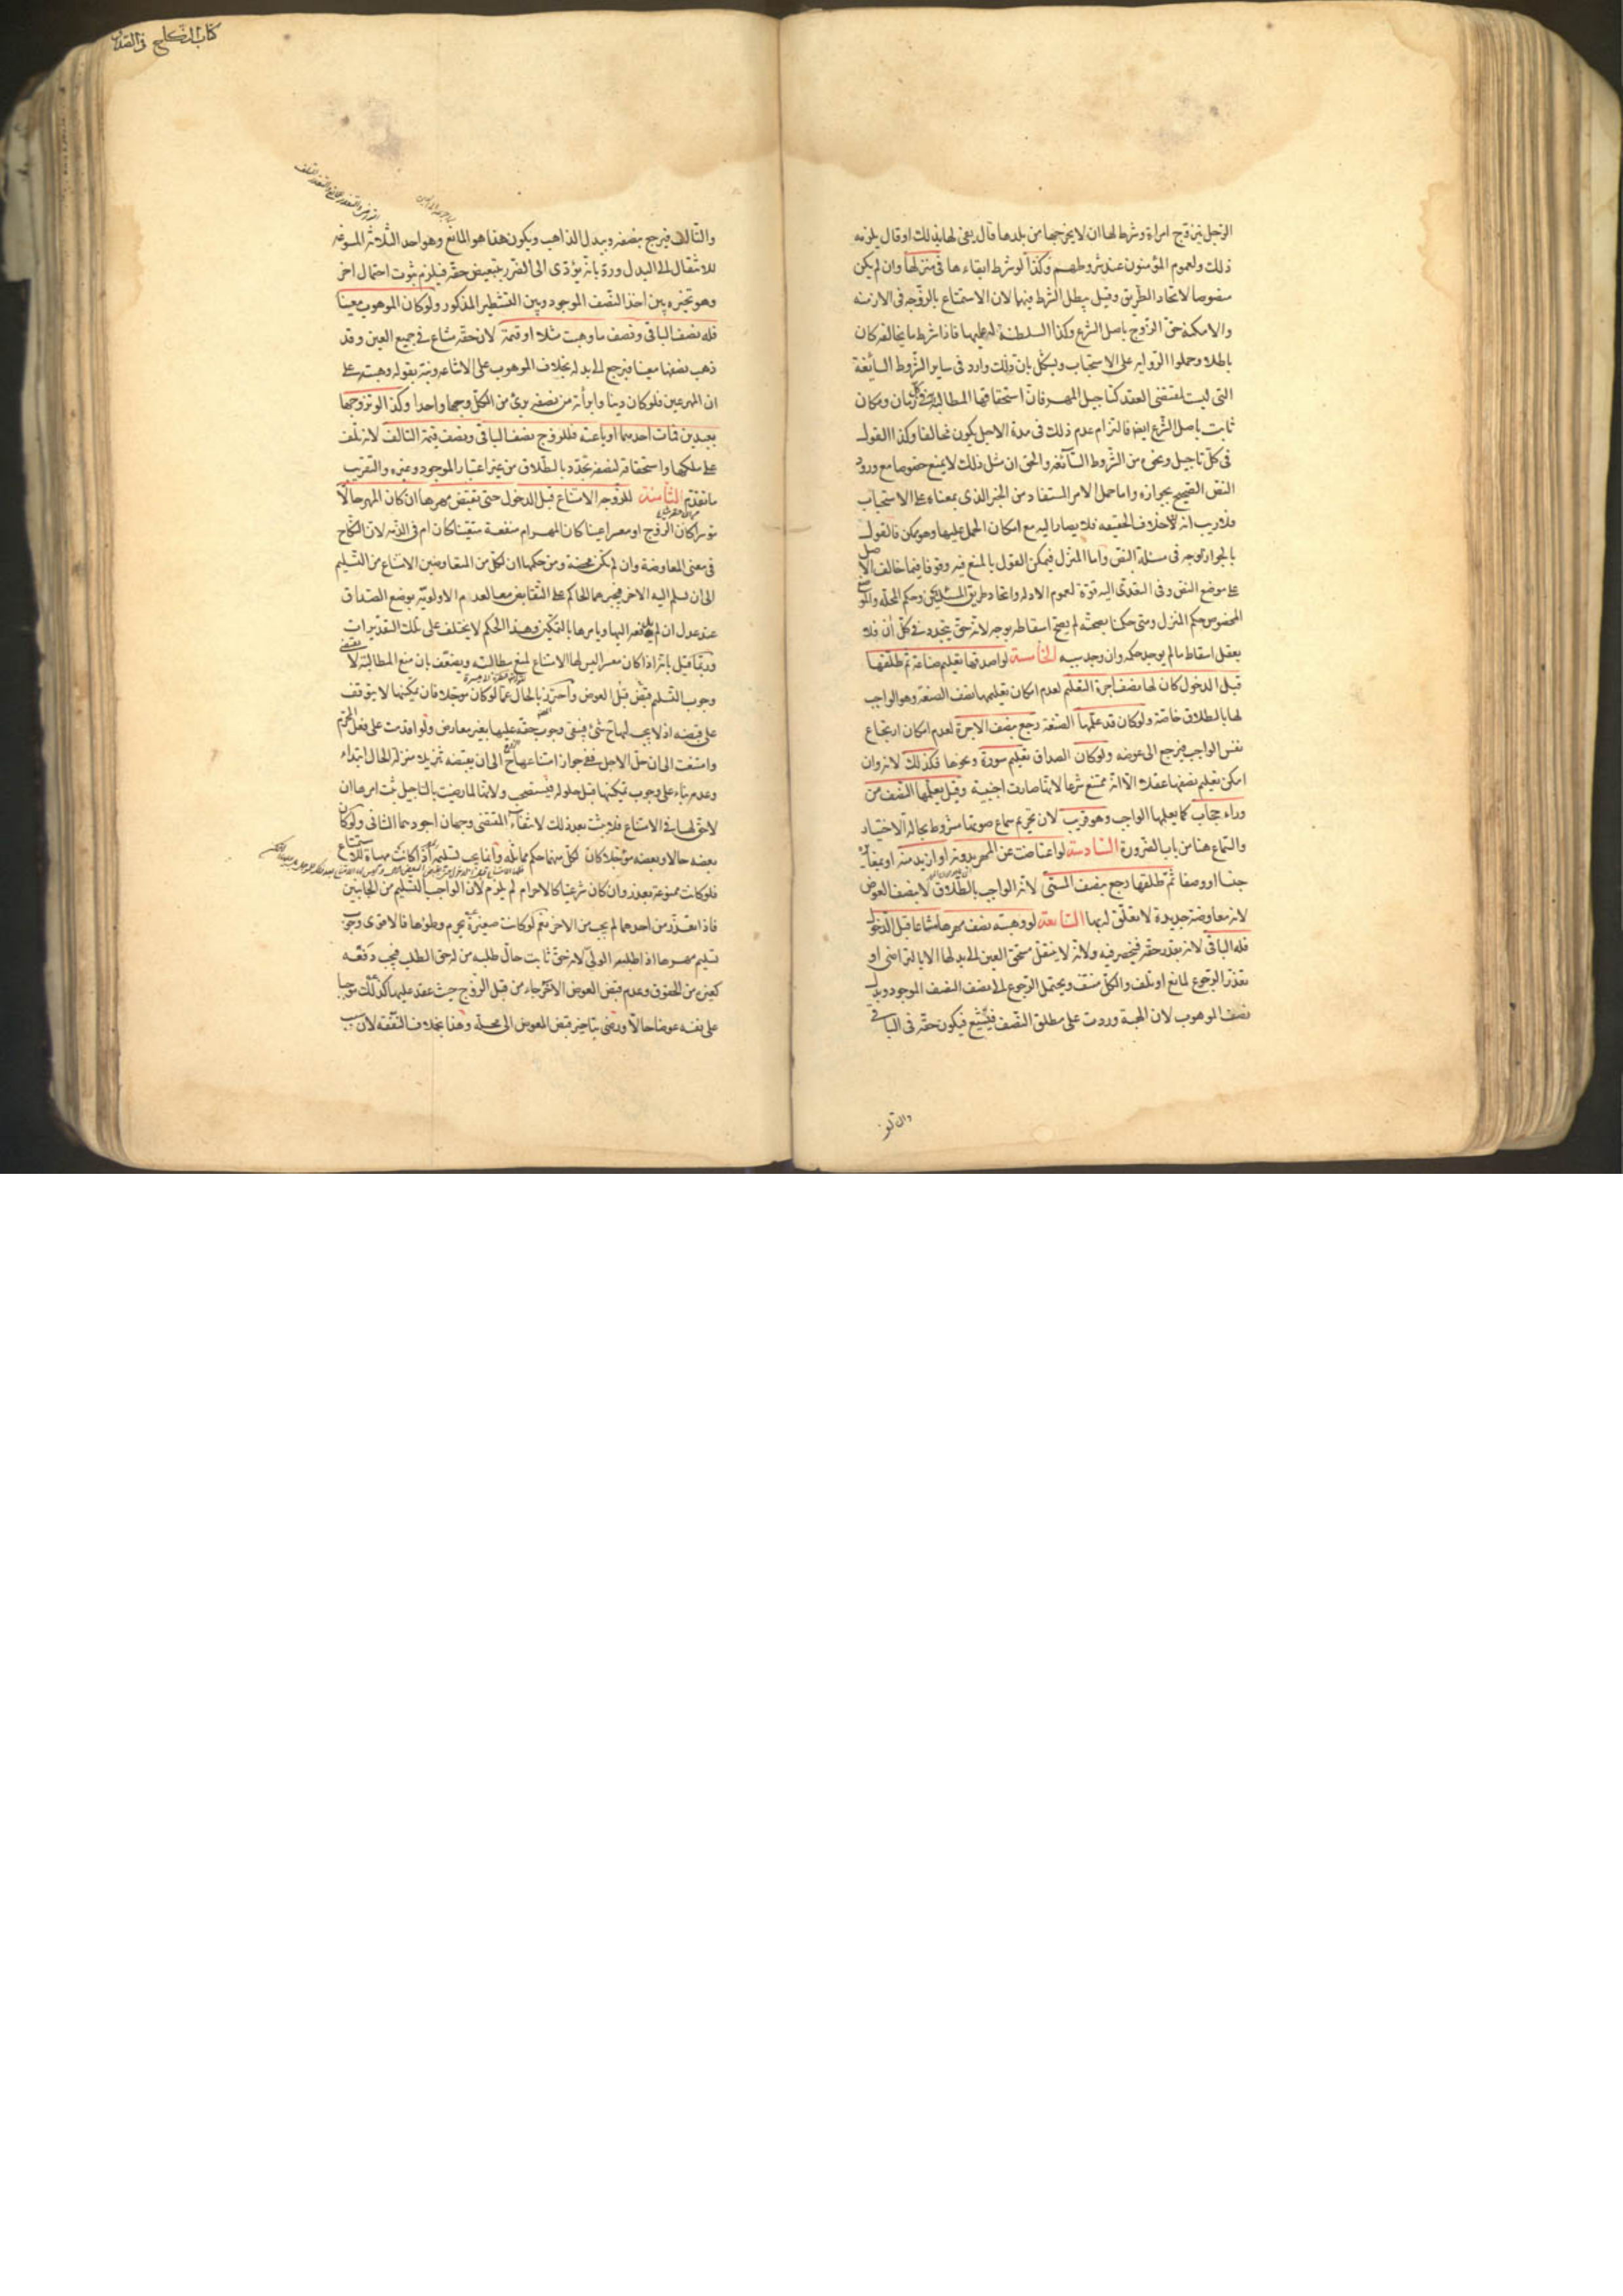 كتاب النكاح في الصداق
الرجل يتزوج امراة وشرط لها ان لا يخرجها من بلدها قال يفي لها بذلك او قال يلزمه
ذلك ولعموم المؤمنون عند شروطهم وكذا لو شرط ابقاءها في منزلها وان لم يكن
منصوصا لاتحاد الطريق وقيل يبطل الشرط فيها لان الاستمتاع بالزوجة في الازمنة
والامكنة حق الزوج باصل الشرع وكذا السلطنة له عليها فاذا شرط ما يخالفه كان
باطلا وحملوا الرواية على الاستحباب ويشكل بان ذلك وارد في ساير الشروط السائغة
التي ليست بمقتضى العقد كتاجيل المهر فان استحقاقها المطالبة به في كل زمان ومكان
ثابت باصل الشرع ايضا فالتزام عدم ذلك في مدة الاجل يكون مخالفا وكذا القول
في كل تاجيل ونحوه من الشروط السائغة والحق ان مثل ذلك لا يمنع خصوصا مع ورود
النص الصحيح بجوازه واما حمل الامر المستفاد من الخبر الذي بمعناه على الاستحباب
فلا ريب انه خلاف الحقيقة فلا يصار اليه مع امكان الحمل عليها وهو ممكن فالقول
بالجواز اوجه في مسئلة النص واما المنزل فيمكن القول بالمنع فيه وقوفا فيما خالف الاصل
على موضع النص وفي التعدي اليه قوة لعموم الادلة واتحاد طريق المسئلتين وحكم المحلة والموضع
المخصوص حكم المنزل ومتى حكمنا بصحته لم يصح اسقاطه بوجه لانه حق يتجدد في كل آن فلا
يعقل اسقاط ما لم يوجد حكمه وان وجد سببه الخامسة لو اصدقها تعليم صناعة ثم طلقها
قبل الدخول كان لها نصف اجرة التعليم لعدم امكان تعليمها نصف الصنعة وهو الواجب
لها بالطلاق خاصة ولو كان قد علمها الصنعة رجع بنصف الاجرة لعدم امكان ارتجاع
نفس الواجب فيرجع الى عوضه ولو كان الصداق تعليم سورة ونحوها فكذلك لانه وان
امكن تعليم نصفها عقلا الا انه ممتنع شرعا لانها صارت اجنبية وقيل يعلمها النصف من
وراء حجاب كما يعلمها الواجب وهو قريب لان تحريم سماع صوتها مشروط بحالة الاختيار
والسماع هنا من باب الضرورة السادسة لو اعتاضت عن المهر بدونه او ازيد منه او بمغايره
جنسا او وصفا ثم طلقها رجع بنصف المسمى لانه الواجب بالطلاق لا بنصف العوض
لانه معاوضة جديدة لا تعلق له بها السابعة لو وهبته نصف مهرها مشاعا قبل الدخول
فله الباقي لانه بقدر حقه فينحصر فيه ولانه لا ينتقل مستحق العين الى بدلها الا بالتراضي او
تعذر الرجوع لمانع او تلف والكل منتف ويحتمل الرجوع الى نصف النصف الموجود وبدل
نصف الموهوب لان الهبة وردت على مطلق النصف فيشيع فيكون حقه في الباقي
والتالف فيرجع بنصفه وببدل الذاهب ويكون هذا هو المانع وهو احد الثلاثة المسوغة
للانتقال الى البدل ورد بانه يؤدي الى الضرر بتبعيض حقه فيلزم ثبوت احتمال اخر
وهو تخيره بين اخذ النصف الموجود وبين التشطير المذكور ولو كان الموهوب معينا
فله نصف الباقي ونصف ما وهبت مثلا او قيمة لان حقه مشاع في جميع العين وقد
ذهب نصفها معينا فيرجع الى بدله بخلاف الموهوب على الاشاعة ونبه بقوله وهبته على
ان المهر عين فلو كان دينا وابرأته من نصفه برئ من الكل وجها واحدا وكذا لو تزوجها
بعبدين فمات احدهما او باعته فللزوج نصف الباقي ونصف قيمة التالف لانه تلف
على ملكها واستحقاقه لنصفه تجدد بالطلاق من غير اعتبار الموجود وغيره والتقريب
ما تقدم الثامنة للزوجة الامتناع قبل الدخول حتى تقبض مهرها ان كان المهر حالا
موسرا كان الزوج او معسرا عينا كان المهر ام منفعة متعينا كان ام في الذمة لان النكاح
في معنى المعاوضة وان لم يكن محضة ومن حكمها ان لكل من المتعاوضين الامتناع من التسليم
الى ان يسلم اليه الاخر فيجبرهما الحاكم على التقابض معا لعدم الاولوية بوضع الصداق
عند عدل ان لم يدفعه اليها ويامرها بالتمكين وهذا الحكم لا يختلف على تلك التقديرات
وربما قيل بانه اذا كان معسرا ليس لها الامتناع لمنع مطالبته ويضعف بان منع المطالبة لا يقتضي
وجوب التسليم قبض قبل العوض واحترز بالحال عما لو كان مؤجلا فان تمكينها لا يتوقف
على قبضه اذ لا يجب لها ح شئ فيبقى وجوب حقه عليها بغير معارض ولو اقدمت على فعل المحرم
وامتنعت الى ان حل الاجل ففي جواز امتناعها ح الى ان يقبضه تنزيلا منزلة الحال ابتداء
وعدمه بناء على وجوب تمكينها قبل حلوله فيستصحب ولانها لما رضيت بالتاجيل بنت امرها ان
لا حق لها في الامتناع فلا يثبت بعد ذلك لانتفاء المقتضي وجهان اجودهما الثاني ولو كان
بعضه حالا وبعضه مؤجلا كان لكل منهما حكم مماثله وانما يجب تسليمه اذا كانت مهياة للاستمتاع
فلو كانت ممنوعة بعذر وان كان شرعيا كالاحرام لم يلزم لان الواجب التسليم من الجانبين
فاذا تعذر من احدهما لم يجب من الاخر نعم لو كانت صغيرة يحرم وطؤها فالاقوى وجوب
تسليم مهرها اذا طلبه الولي لانه حق ثابت حال طلبه من له حق الطلب فيجب دفعه
كغيره من الحقوق وعدم قبض العوض الاخر جاء من قبل الزوج حيث عقد عليها كذلك موجبا
على نفسه عوضا حالا ورضي بتاخير قبض المعوض الى محله وهذا بخلاف النفقة لان سبب